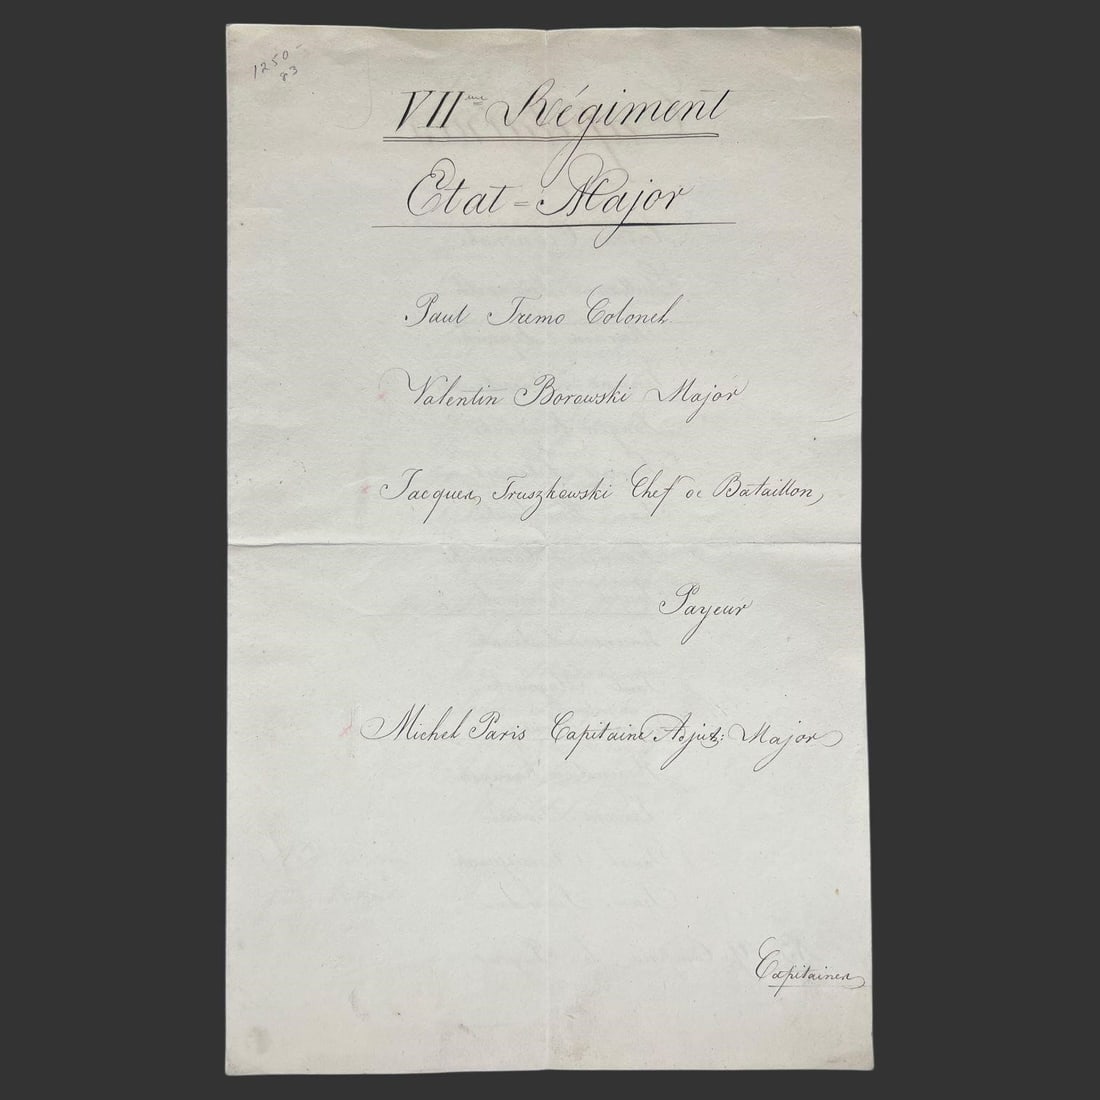 1250-
83
VIIeme Régiment
Etat=Major
Paul Tremo Colonel
Valentin Borowski Major
Jacques Truszkowski Chef de Bataillon,
Payeur
Michel Paris Capitaine Adjut: Major
Capitaines